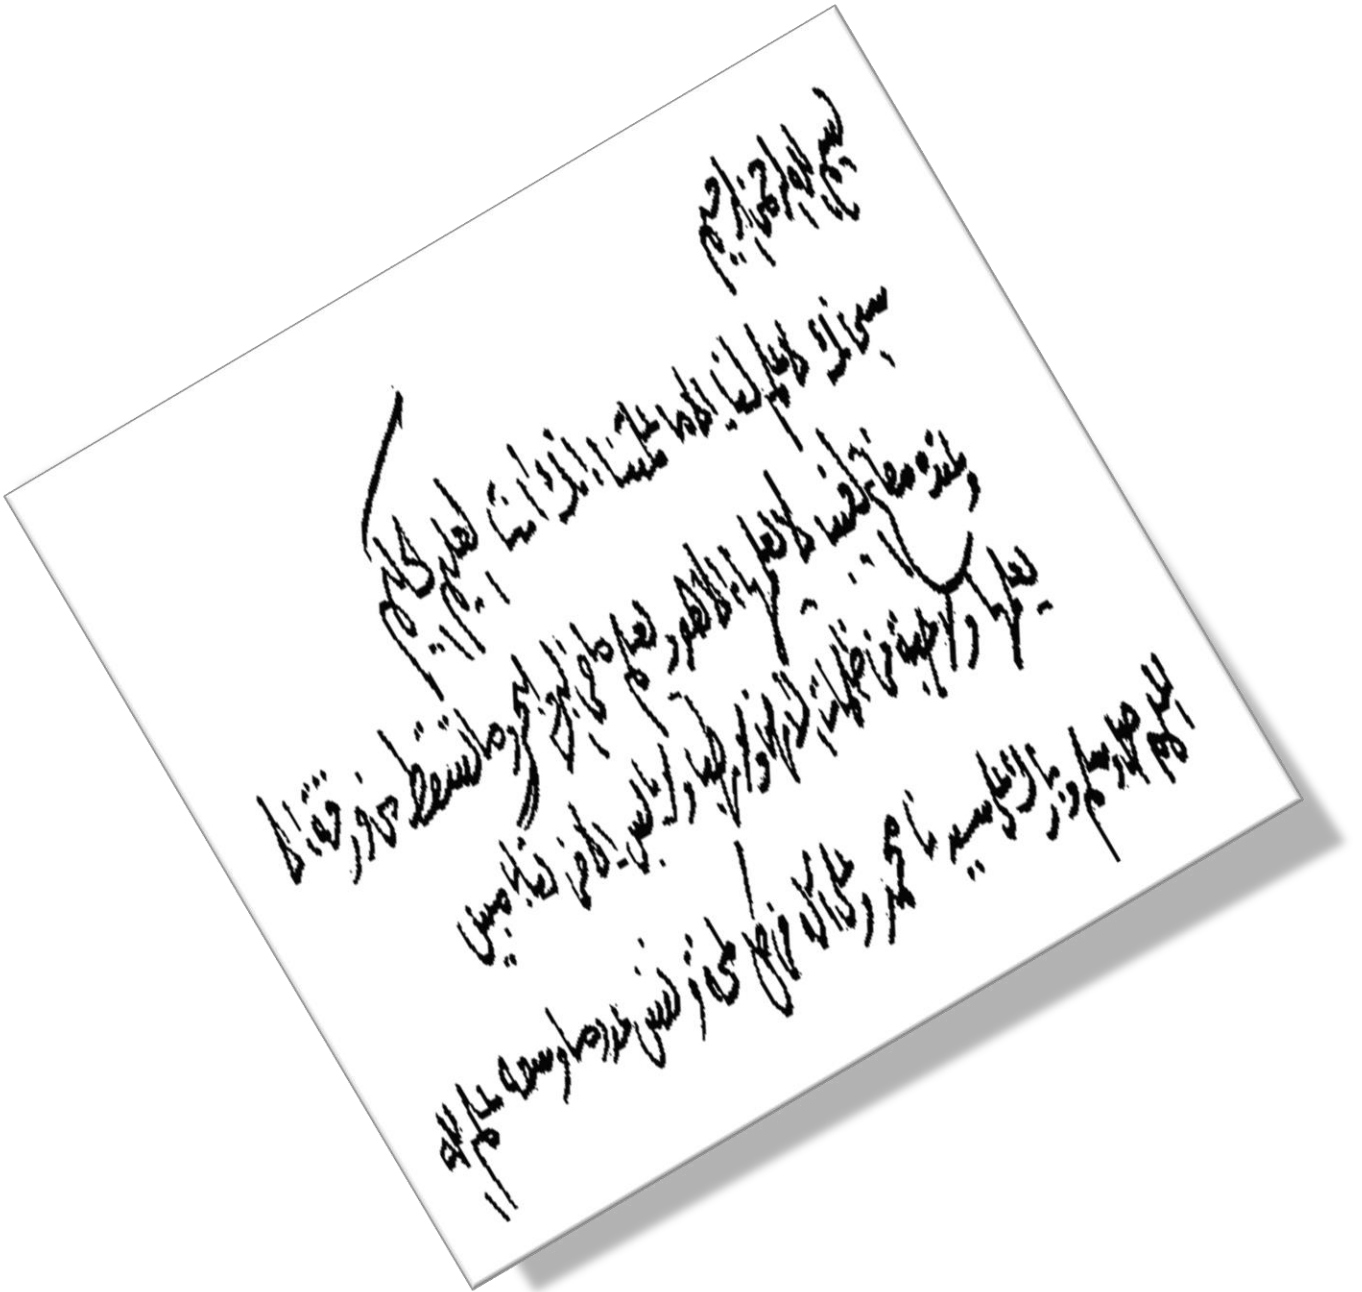 بسم الله الرحمن الرحيم
سبحانك لا علم لنا إلا ما علمتنا إنك أنت العليم الحكيم
وعنده مفاتح الغيب لا يعلمها إلا هو ويعلم ما في البر والبحر وما تسقط من ورقة إلا
يعلمها ولا حبة في ظلمات الأرض ولا رطب ولا يابس إلا في كتاب مبين
اللهم صل وسلم وبارك على سيدنا محمد وعلى آله في كل لمحة ونفس عدد ما وسعه علم الله